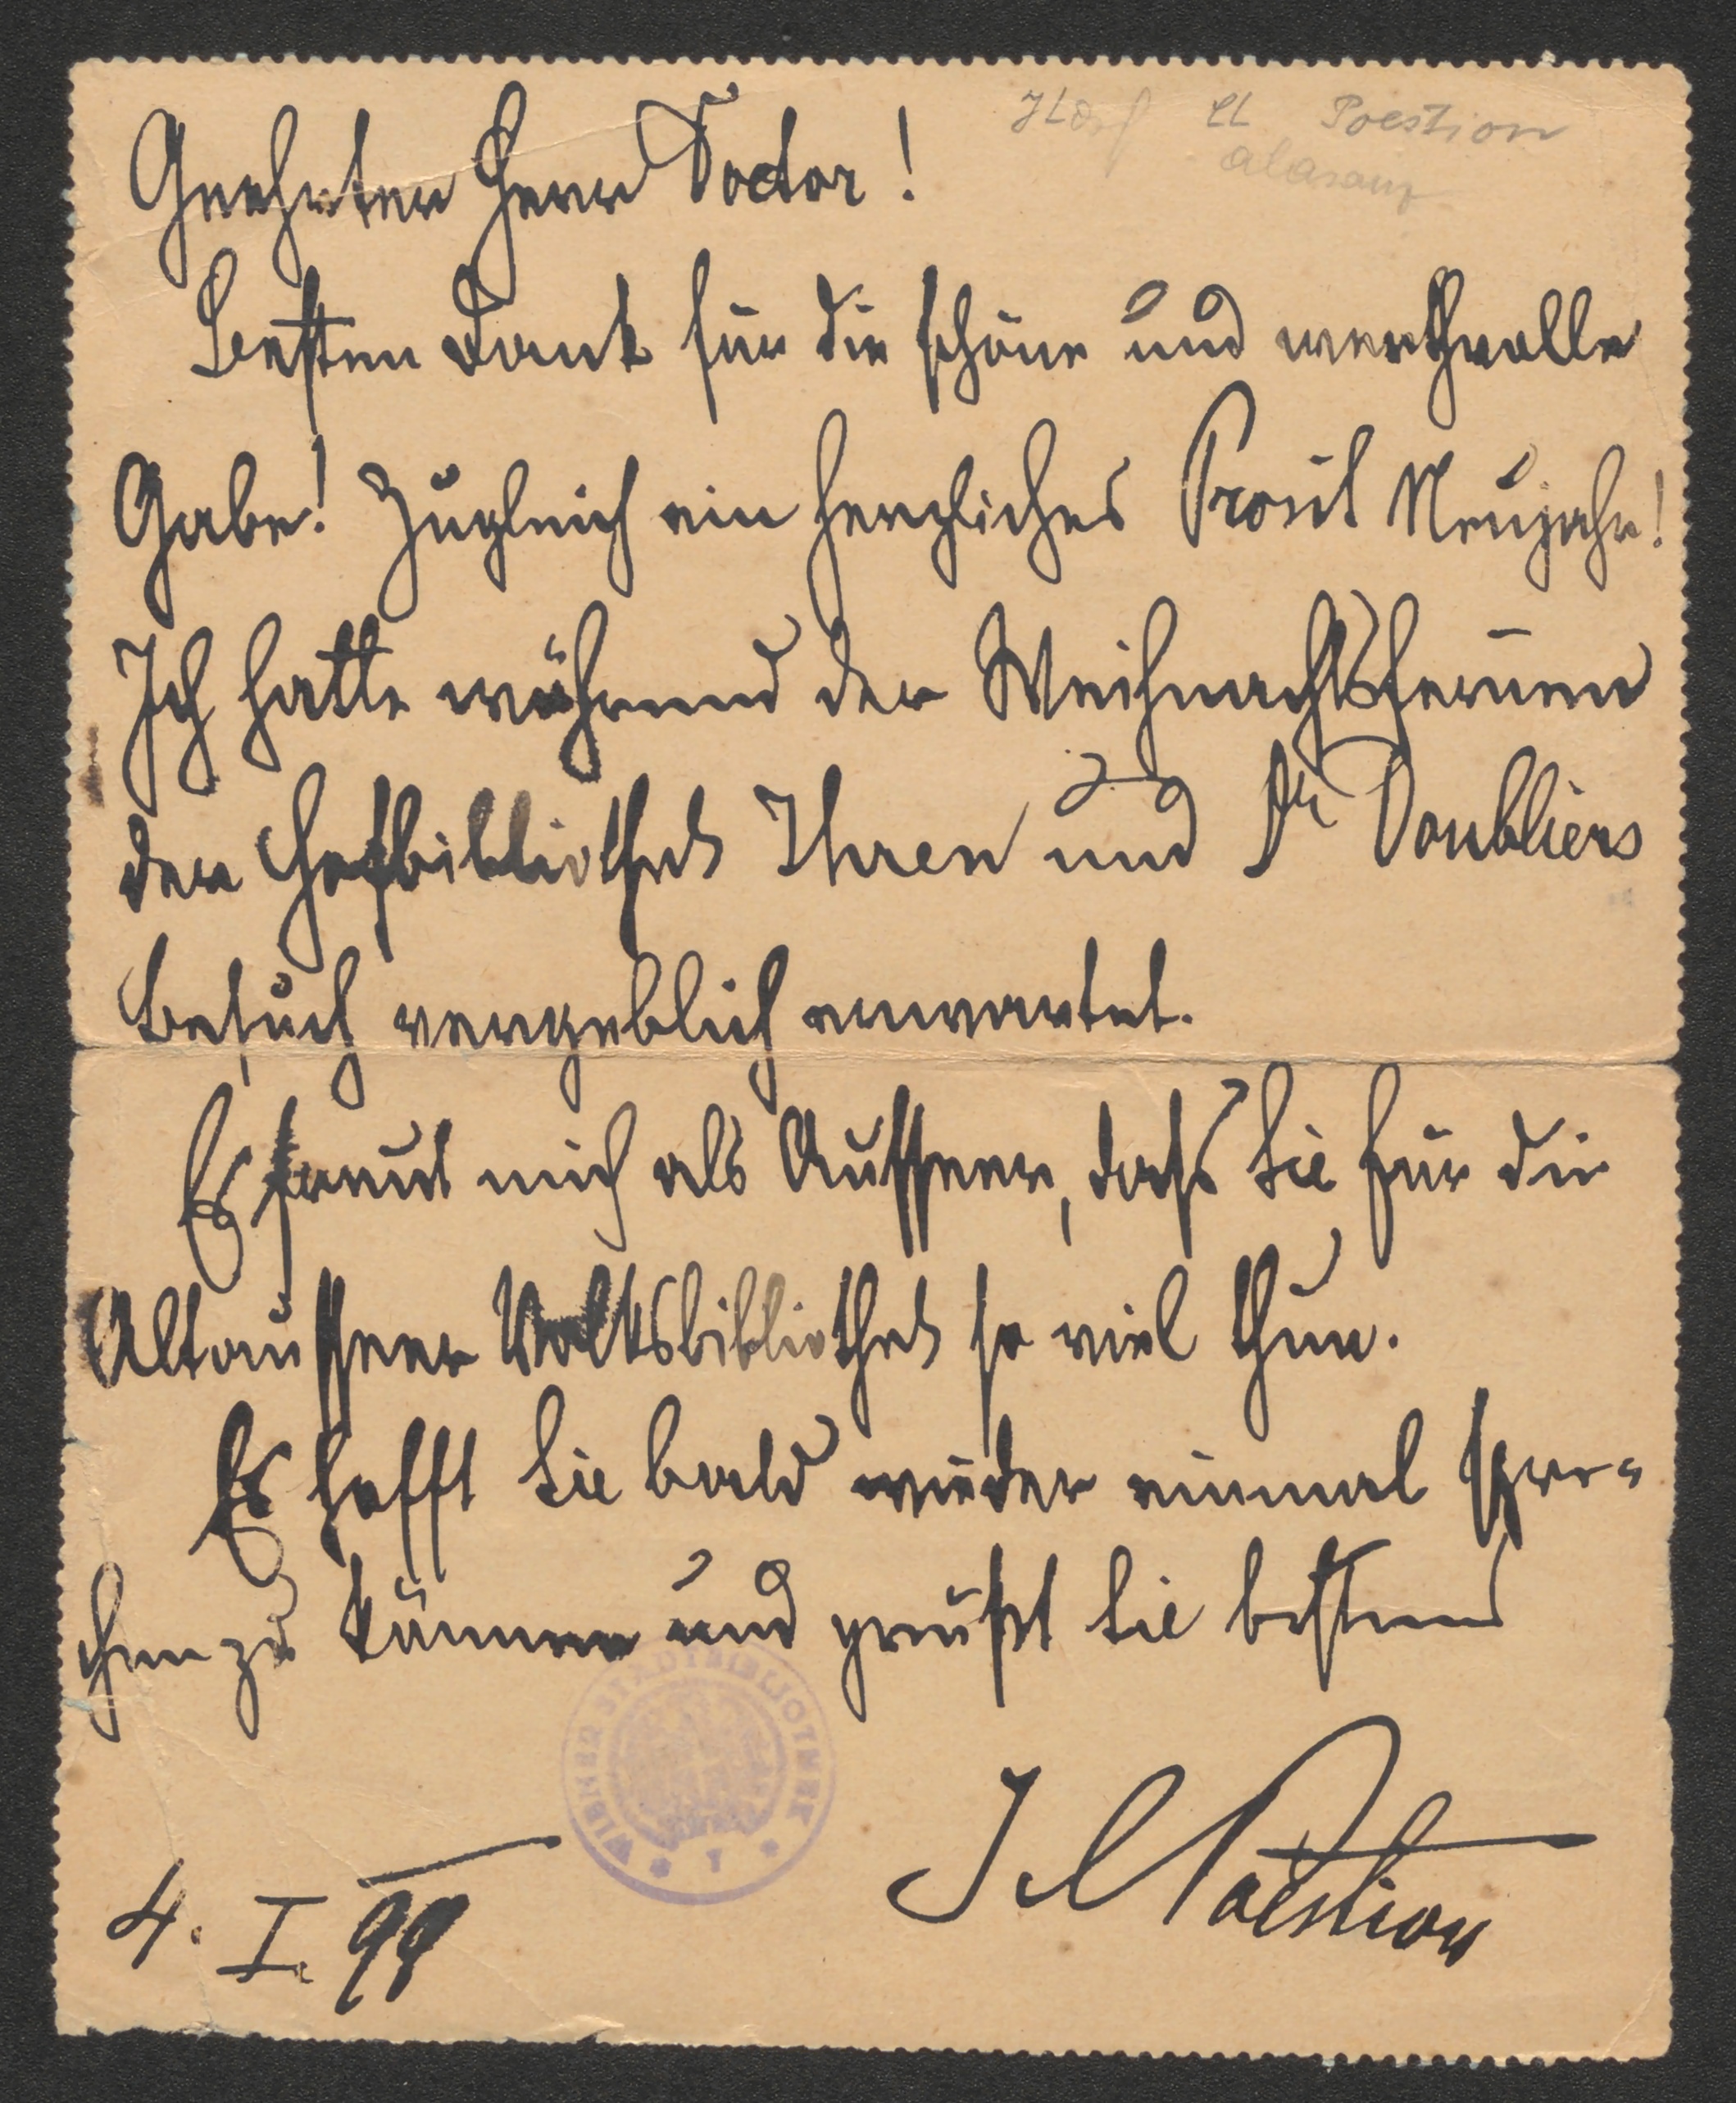 Poestion
Geehrter Herr Doctor!
Besten Dank für die schöne und werthvolle
Gabe! Zugleich ein herzliches Prosit Neujahr!
Ich hatte während der Weihnachtsferien
der Hofbibliothek Ihren und Dr Doubliers
Besuch vergeblich erwartet.
Es freut mich als Ausseer, dass Sie für die
Altausseer Volksbibliothek so viel thun.
Es hofft Sie bald wieder einmal spre-
chen zu können und grüßt Sie bestens
WIENER STADTBIBLIOTHEK
J C Poestion
4. I. 99